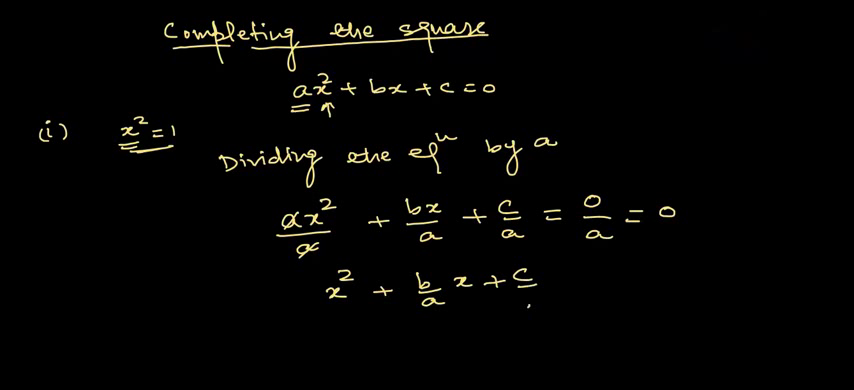 Completing the square
ax² + bx + c = 0
(i) x² = 1
Dividing the eqⁿ by a
ax²/a + bx/a + c/a = 0/a = 0
x² + b/a x + c/